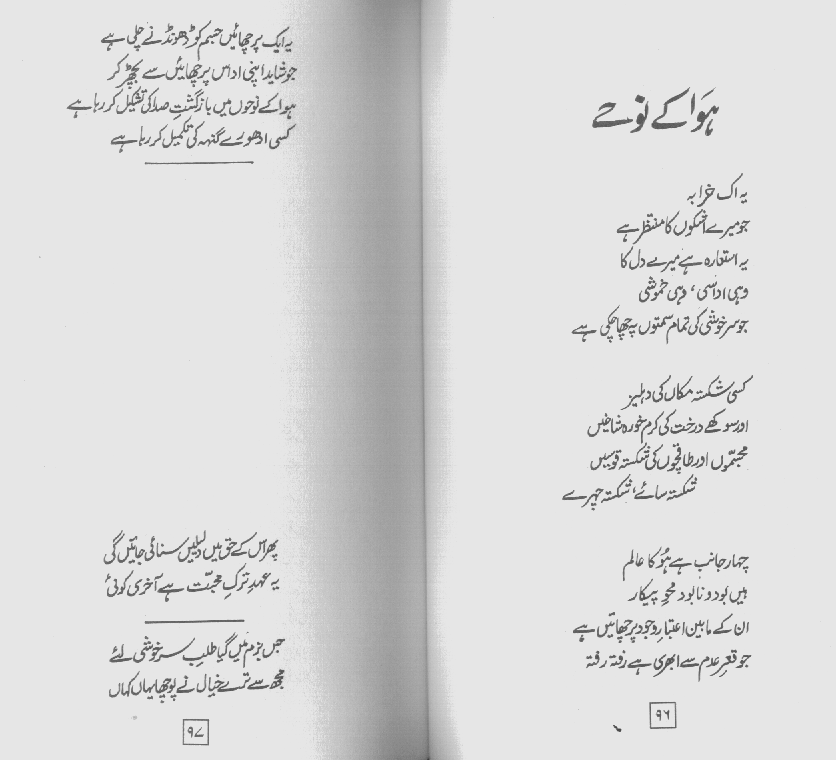 ہوا کے نوحے
یہ اک خرابہ
جو میرے اشکوں کا منتظر ہے
یہ استعارہ ہے میرے دل کا
وہی اداسی، وہی خموشی
جو سرخوشی کی تمام سمتوں پہ چھا چکی ہے
کسی شکستہ مکاں کی دہلیز
اور سوکھے درخت کی کرم خوردہ شاخیں
مجسّموں اور طاقچوں کی شکستہ قوسیں
شکستہ سائے، شکستہ چہرے
چہار جانب ہے ہُو کا عالم
ہیں بود و نابود محوِ پیکار
ان کے مابین اعتبارِ وجود پرچھائیں ہے
جو قعرِ عدم سے ابھری ہے رفتہ رفتہ
۹۶
یہ ایک پرچھائیں جسم کو ڈھونڈنے چلی ہے
جو شاید اپنی اداس پرچھائیں سے بچھڑ کر
ہوا کے نوحوں میں بازگشتِ صدا کی تشکیل کر رہا ہے
کسی ادھورے گنہہ کی تکمیل کر رہا ہے
پھر اس کے حق میں دلیلیں سنائی جائیں گی
یہ عہدِ ترکِ محبّت ہے آخری کوئی
جس بزم میں گیا طلبِ سرخوشی لئے
مجھ سے ترے خیال نے پوچھا یہاں کہاں
۹۷